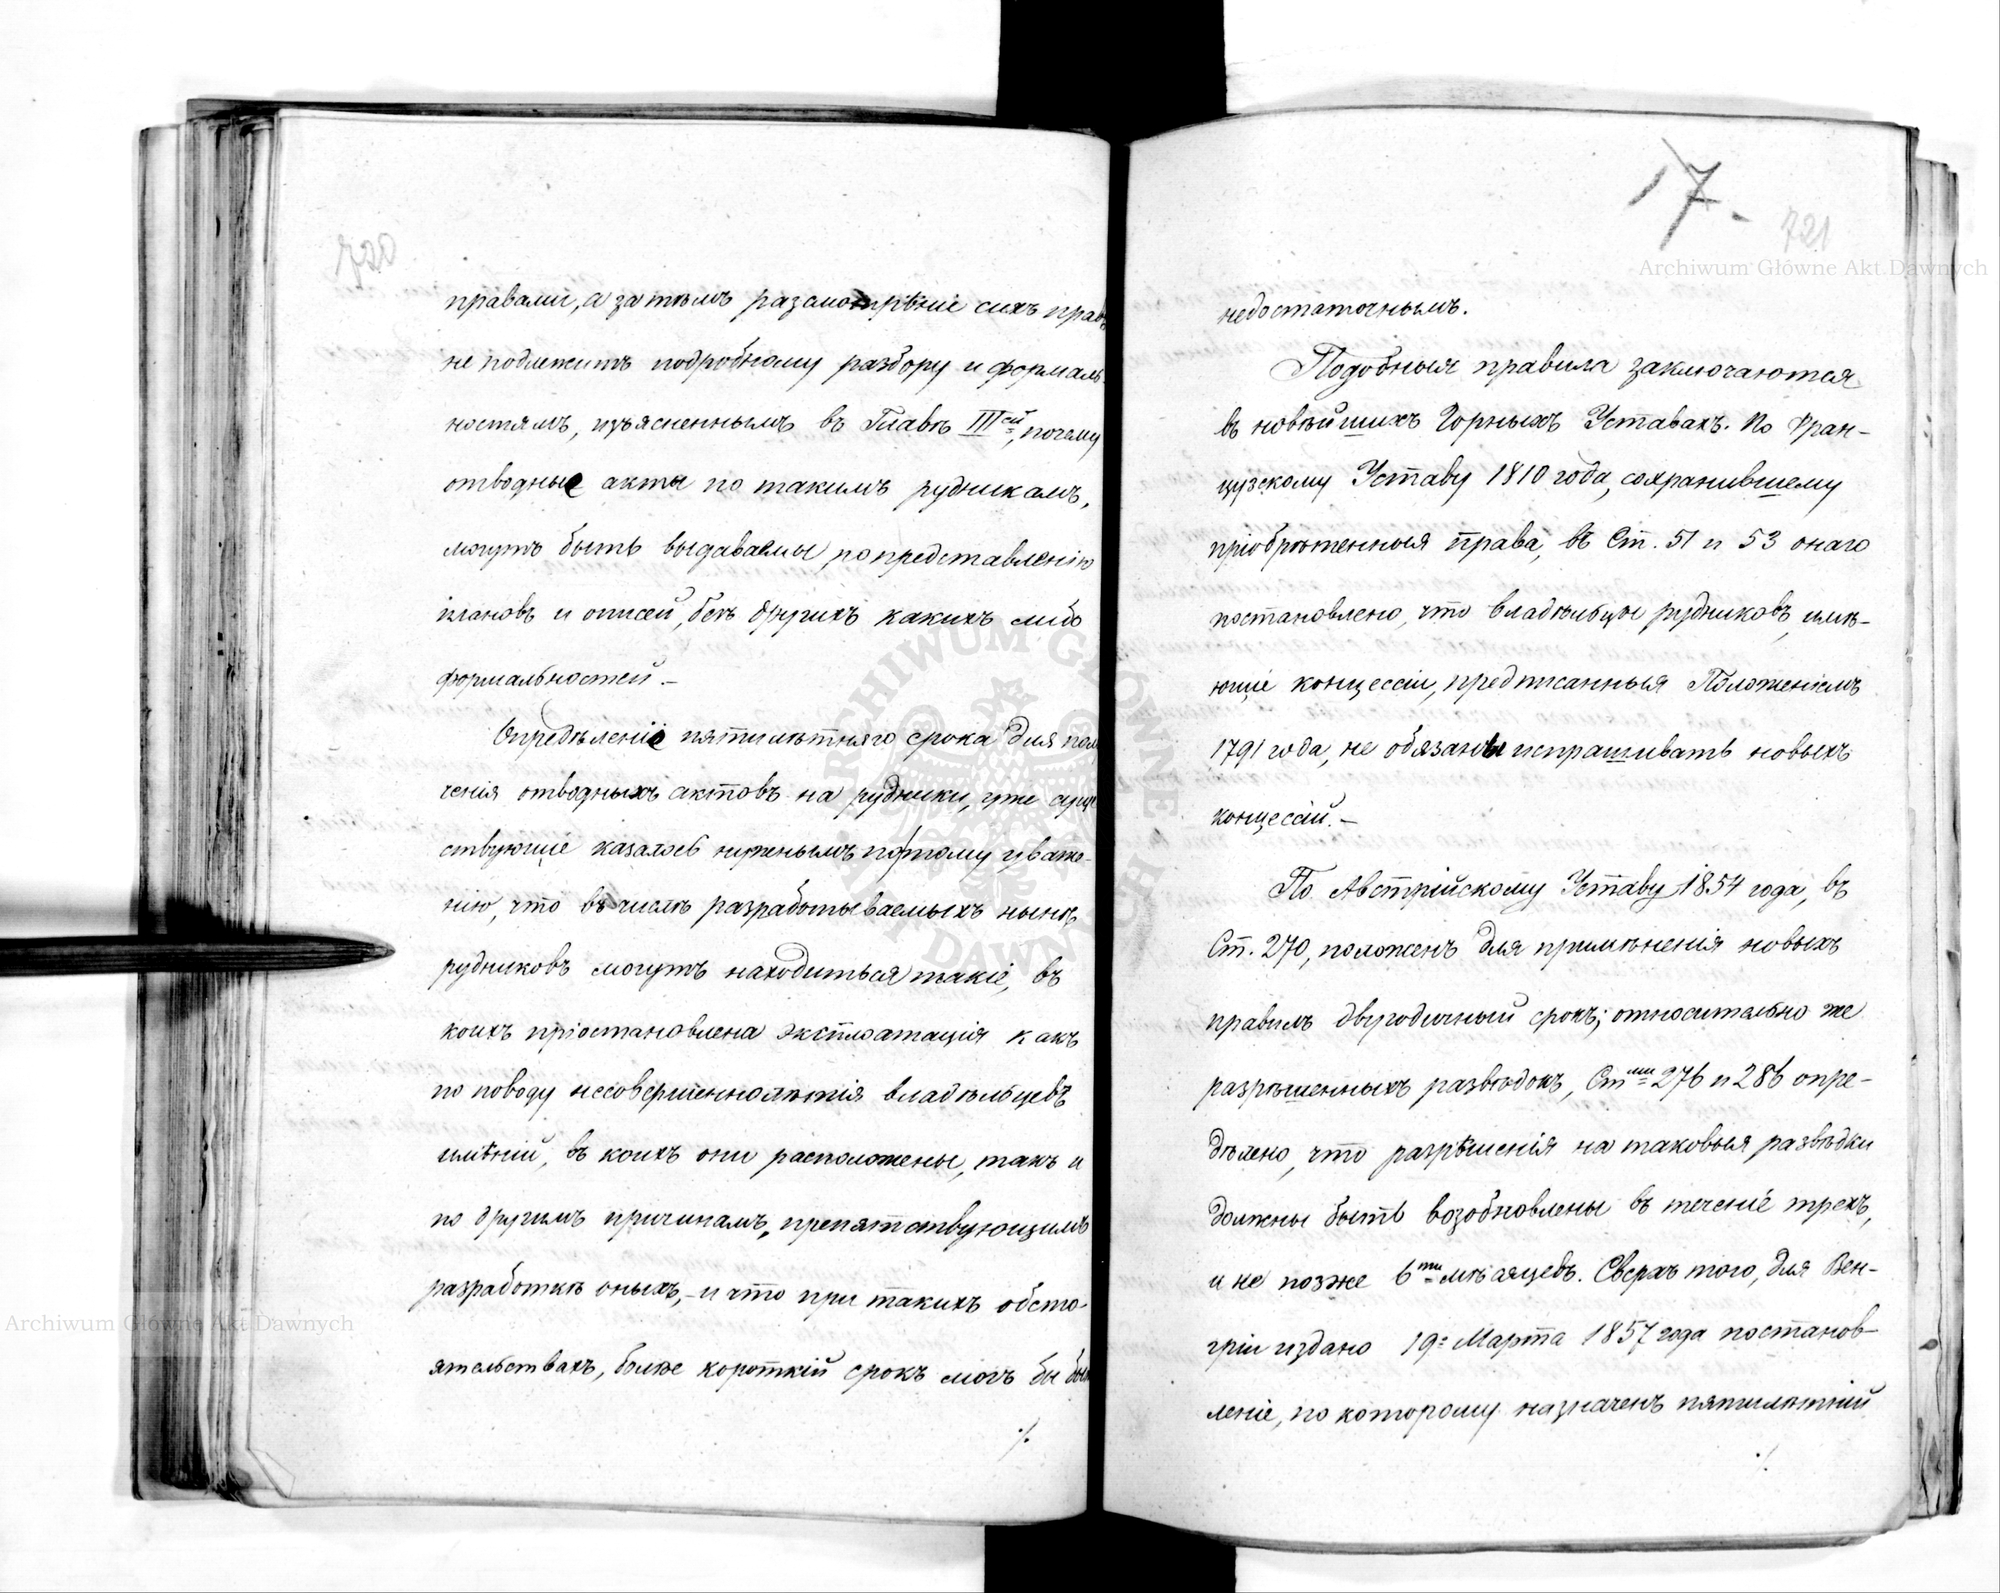 720
правами, а затѣмъ разсмотрѣніе сихъ правъ
не подлежитъ подробному разбору и формаль-
ностямъ, изъясненнымъ въ Главѣ III-ей, почему
отводные акты по такимъ рудникамъ,
могутъ быть выдаваемы, по представленію
плановъ и описей, безъ другихъ какихъ либо
формальностей.–
Опредѣленіе пятилѣтняго срока для полу
ченія отводныхъ актовъ на рудники, уже суще
ствующіе казалось нужнымъ потому уваже-
нію, что въ числѣ разработываемыхъ нынѣ
рудниковъ могутъ находиться такіе, въ
коихъ пріостановлена эксплоатація какъ
по поводу несовершеннолѣтія владѣльцевъ
имѣній, въ коихъ они расположены, такъ и
по другимъ причинамъ, препятствующимъ
разработкѣ оныхъ,– и что при такихъ обсто-
ятельствахъ, болѣе короткій срокъ могъ бы быть
./.
17.
721
недостаточнымъ.
Подобныя правила заключаются
въ новѣйшихъ Горныхъ Уставахъ. По Фран-
цузскому Уставу 1810 года, сохранившему
пріобрѣтенныя права, въ Ст. 51 и 53 онаго
постановлено, что владѣльцы рудниковъ, имѣ-
ющіе концессіи, предписанныя Положеніемъ
1791 года, не обязаны испрашивать новыхъ
концессій.–
По Австрійскому Уставу 1854 года, въ
Ст. 270, положенъ для примѣненія новыхъ
правилъ двугодичный срокъ; относительно же
разрѣшенныхъ развѣдокъ, Ст-ми 276 и 286 опре-
дѣлено, что разрѣшенія на таковыя развѣдки
должны быть возобновлены въ теченіе трехъ,
и не позже 6-ти мѣсяцевъ. Сверхъ того, для Вен-
гріи издано 19-го Марта 1857 года постанов-
леніе, по которому назначенъ пятилѣтній
./.
Archiwum Główne Akt Dawnych
Archiwum Główne Akt Dawnych
ARCHIWUM GŁÓWNE AKT DAWNYCH